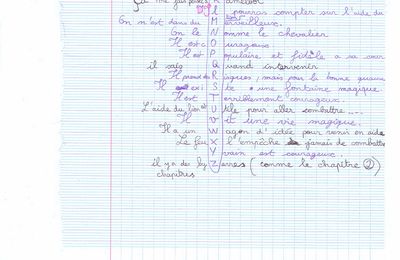 Ça me fais K améloor
L pourras compter sur l'aide du
On n'est dans du M erveilleux.
On le N omme le chevalier
Il est c O urageux
Il est P opulaire et fidèle a sa
il sait Q uand intervenir
Il prend des R isques, mais pour la bonne cause
Il exi S te une fontaine magique.
Il est T erriblement courageux.
L'aide du lion est U tile pour aller combattre....
Il V it une vie magique.
Il a un W agon d'idée pour venir en aide
Le feu X l'empêche jamais de combattre
Y vain est courageux.
il y a de lé Z erres (comme le chapitre ②)
chapitres